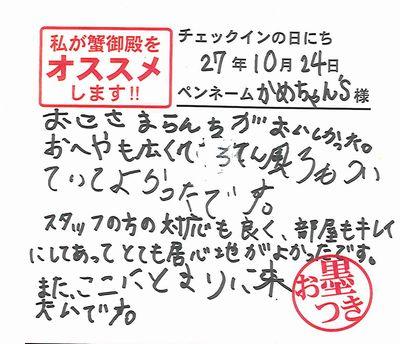 私が蟹御殿を
オススメ
します!!
チェックインの日にち
27年10月24日
ペンネーム かめちゃん'S 様
おこさまらんちがおいしかった。
おへやも広くて ろてん風ろもつい
ていてよかったです。
スタッフの方の対応も良く、部屋もキレイ
にしてあってとても居心地がよかったです。
また、ここにとまりに来
たいです。
お墨
つき